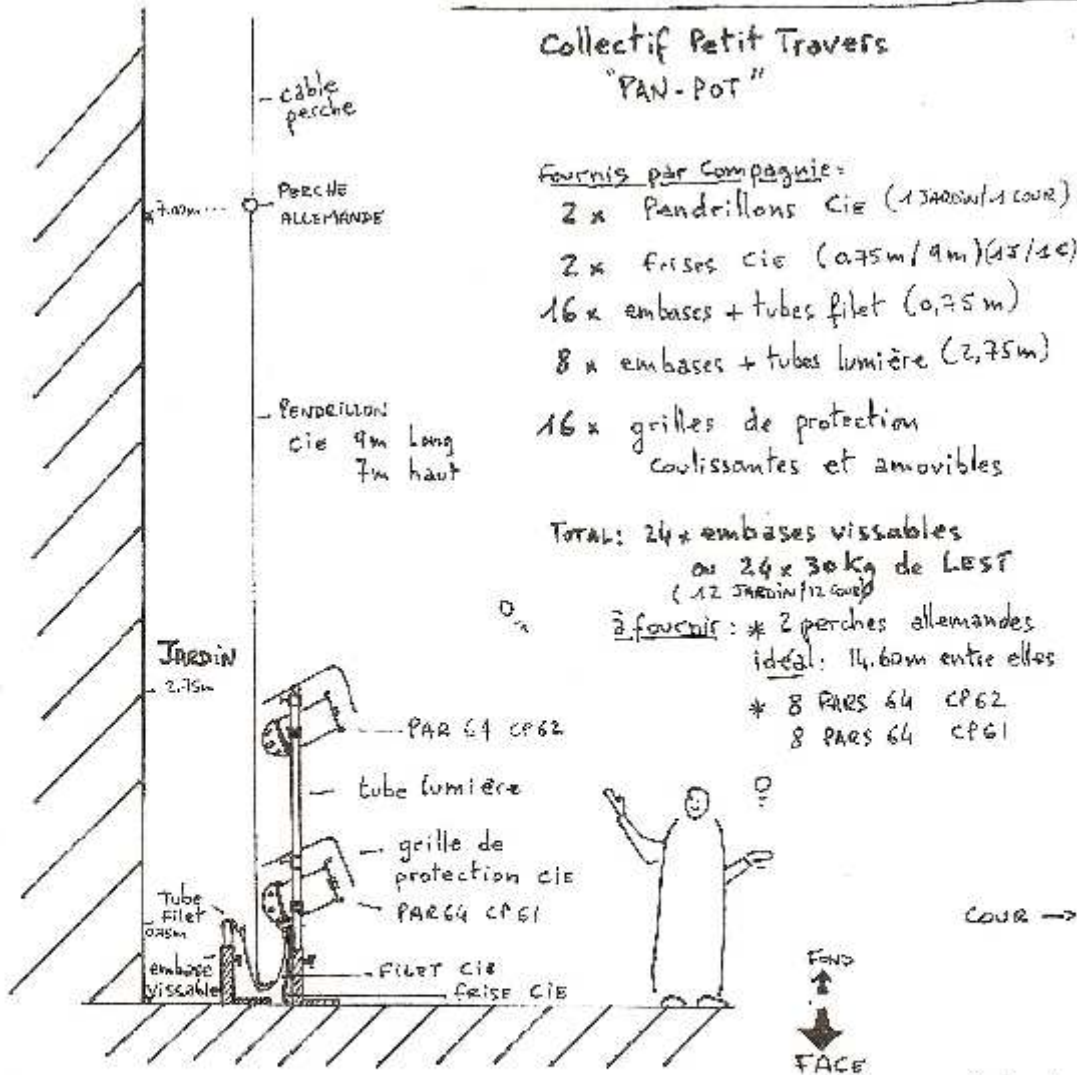 Collectif Petit Travers
"PAN-POT"
Fournis par Compagnie:
2 x Pendrillons CiE (1 JARDIN/1 COUR)
2 x frises CiE (0.75m/9m)(1J/1C)
16 x embases + tubes filet (0,75m)
8 x embases + tubes lumière (2,75m)
16 x grilles de protection
coulissantes et amovibles
TOTAL: 24 x embases vissables
ou 24 x 30 Kg de LEST
(12 JARDIN/12 COUR)
à fournir: * 2 perches allemandes
idéal: 14.60m entre elles
* 8 PARS 64 CP62
8 PARS 64 CP61
cable
perche
PERCHE
ALLEMANDE
PENDRILLON
CiE 9m Long
7m haut
JARDIN
2.75m
PAR 64 CP62
tube lumière
grille de
protection CiE
PAR64 CP61
Tube
filet
0.75m
embase
vissable
FILET CiE
FRISE CiE
COUR →
FOND
FACE